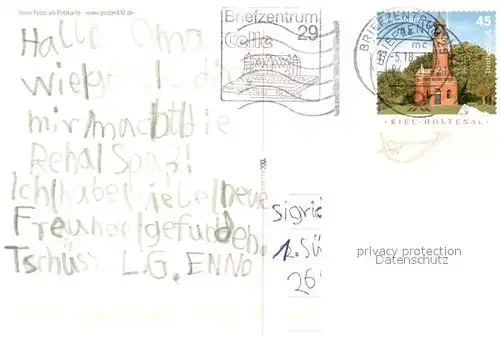 Deine Fotos als Postkarte · www.posterXXL.de
Hallo Oma
wie geht
mir macht die
Reha Spaß!
Ich habe viele neue
Freunde gefunden.
Tschüss L.G. ENNO
Briefzentrum
29
celle
BRIEFZENTRUM
mc
45
KIEL-HOLTENAU
sigrid
2. Sü
26
privacy protection
Datenschutz